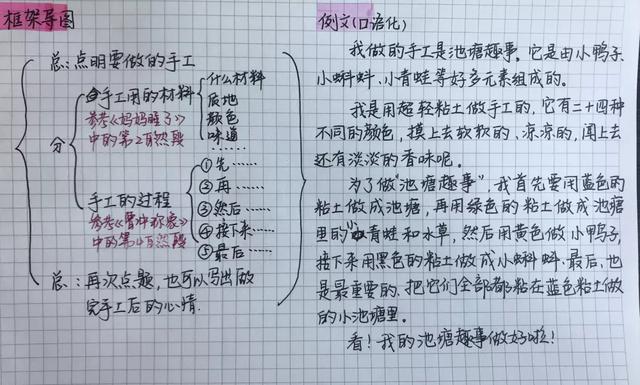 框架导图
总：点明要做的手工
分
手工用的材料
参考《妈妈睡了》
中的第2自然段
什么材料
质地
颜色
味道……
手工的过程
参考《曹冲称象》
中的第4自然段
①先……
②再……
③然后……
④接下来……
⑤最后……
总：再次点题，也可以写出做
完手工后的心情.
例文(口语化)
我做的手工是池塘趣事。它是由小鸭子、
小蝌蚪、小青蛙等好多元素组成的。
我是用超轻粘土做手工的，它有二十四种
不同的颜色，摸上去软软的、凉凉的，闻上去
还有淡淡的香味呢。
为了做“池塘趣事”，我首先要用蓝色的
粘土做成池塘，再用绿色的粘土做成池塘
里的青蛙和水草，然后用黄色做小鸭子，
接下来用黑色的粘土做成小蝌蚪。最后，也
是最重要的、把它们全部都粘在蓝色粘土做
的小池塘里。
看！我的池塘趣事做好啦！